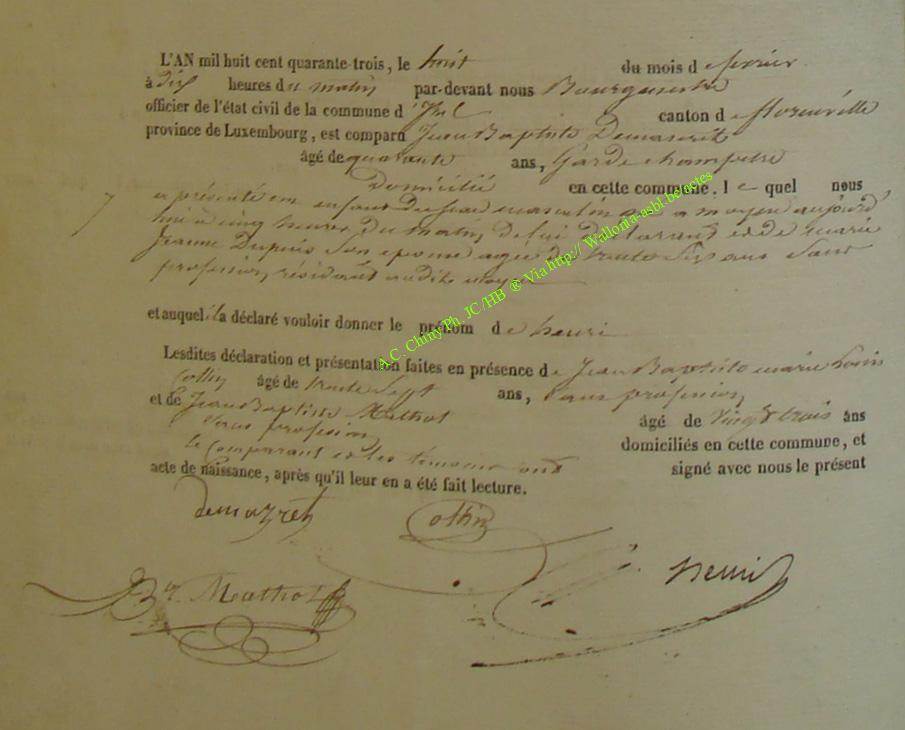 L'AN mil huit cent quarante-trois, le huit du mois de fevrier
à dix heures du matin par-devant nous Bourgmestre
officier de l'état civil de la commune d' canton de florenville
province de Luxembourg, est comparu Jean Baptiste Demazret
âgé de quarante ans, Garde champetre
Domicilié en cette commune, lequel nous
7 a présenté un enfant du sexe masculin né a moyen aujourd
hui à cinq heures du matin, de lui déclarant et de marie
Jeanne Dupuis son epouse agée de trente six ans sans
profession, résidant audit moyen
et auquel il a déclaré vouloir donner le prénom de henri
Lesdites déclaration et présentation faites en présence de Jean Baptiste marie Louis
Collin âgé de trente sept ans, sans profession,
et de Jean Baptiste Mathot âgé de vingt trois ans
sans profession, domiciliés en cette commune, et
le comparant et les témoins ont signé avec nous le présent
acte de naissance, après qu'il leur en a été fait lecture.
demazret Collin
Bte. Mathot henri
A.C. Chiny Ph. JC /HB ® Via http:// Wallonia-asbl.be/actes